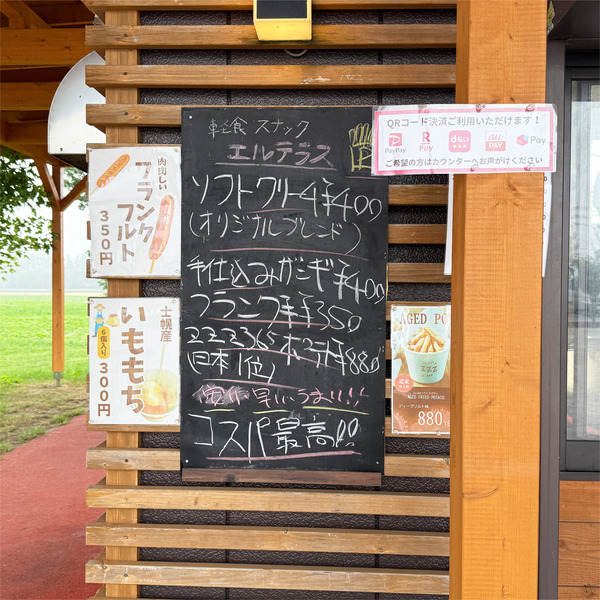 軽食・スナック
エルテラス
ソフトクリーム¥400
(オリジナルブレンド)
手仕込みザンギ¥400
フランク¥350
ZZZ365 ポテト¥880
(日本1位)
早い、うまい!!
コスパ最高!!
QRコード決済ご利用いただけます!
PayPay
R Pay
d払い
au PAY
Pay
ご希望の方はカウンターへお声がけください
肉肉しい
フランクフルト
350円
士幌産
いももち
6個入り
300円
AGED PO
ZZZ
AGED FRIED POTATO
880